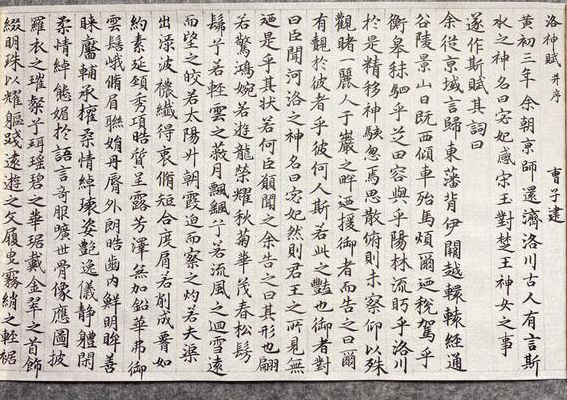 洛神賦 并序 曹子建
黃初三年余朝京師還濟洛川古人有言斯
水之神名曰宓妃感宋玉對楚王神女之事
遂作斯賦其詞曰
余從京域言歸東藩背伊闕越轘轅經通
谷陵景山日既西傾車殆馬煩爾迺稅駕乎
衡皋秣駟乎芝田容與乎陽林流眄乎洛川
於是精移神駭忽焉思散俯則未察仰以殊
觀睹一麗人于巖之畔迺援御者而告之曰爾
有覿於彼者乎彼何人斯若此之豔也御者對
曰臣聞河洛之神名曰宓妃然則君王之所見無
迺是乎其狀若何臣願聞之余告之曰其形也翩
若驚鴻婉若遊龍榮耀秋菊華茂春松髣
髴兮若輕雲之蔽月飄飄兮若流風之迴雪遠
而望之皎若太陽升朝霞迫而察之灼若夫渠
出淥波穠纖得衷脩短合度肩若削成腰如
約素延頸秀項皓質呈露芳澤無加鉛華弗御
雲髻峨脩眉聯娟丹脣外朗皓齒內鮮明眸善
睞靨輔承權柔情綽瓌姿豔逸儀靜體閑
柔情綽態媚於語言奇服曠世骨像應圖披
羅衣之璀粲兮珥瑤碧之華琚戴金翠之首飾
綴明珠以耀軀踐遠遊之文履曳霧綃之輕裾